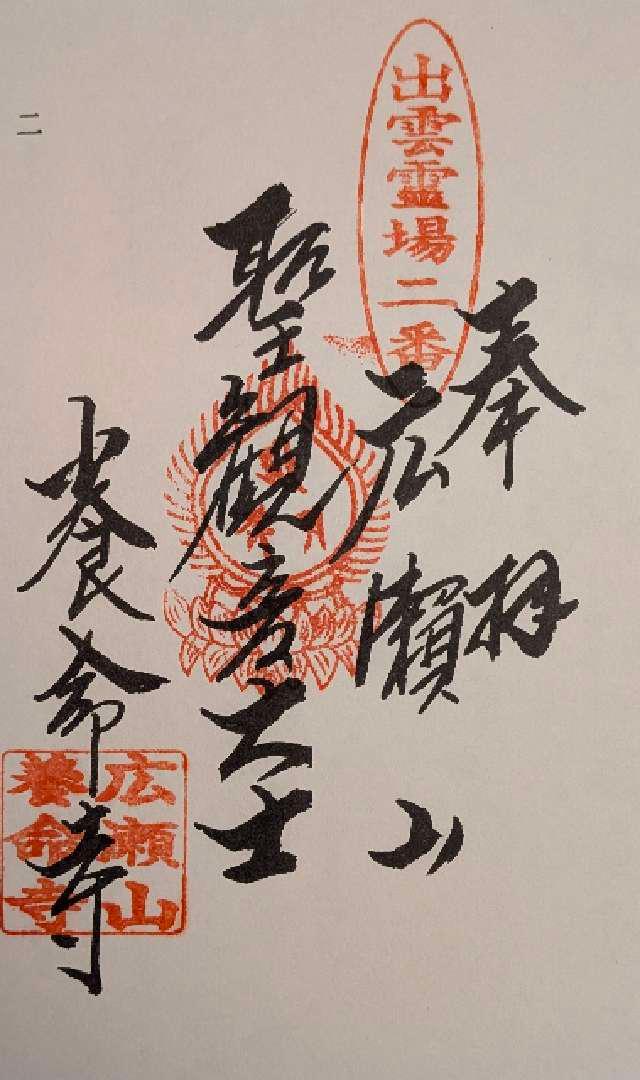 出雲靈場二番
奉拝
広瀬山
聖觀音大士
養命寺
広瀬山
養命寺
二